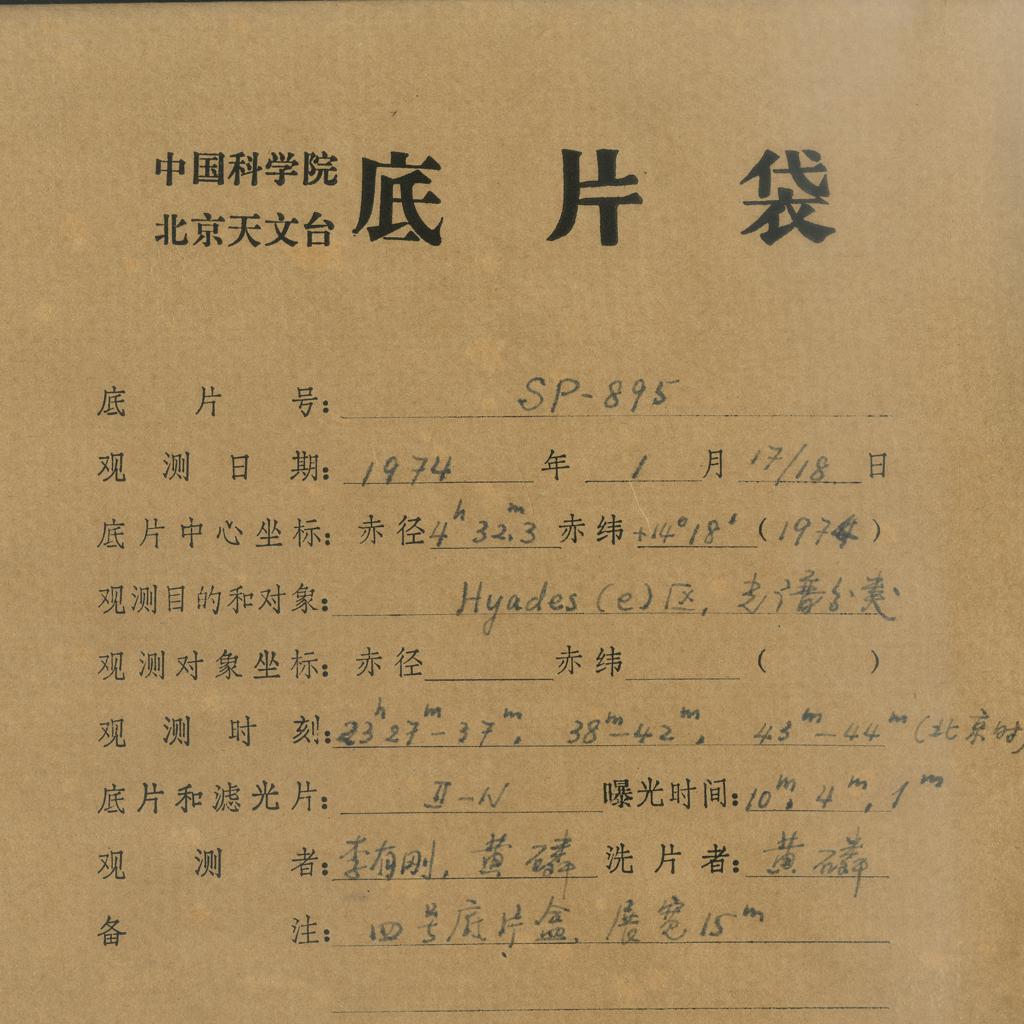 中国科学院
北京天文台
底片袋
底片号：SP-895
观测日期：1974年1月17/18日
底片中心坐标：赤径4ʰ32ᵐ.3赤纬+14°18′(1974)
观测目的和对象：Hyades(e)区，光谱分类
观测对象坐标：赤径 赤纬 ( )
观测时刻：23ʰ27ᵐ-37ᵐ，38ᵐ-42ᵐ，43ᵐ-44ᵐ(北京时)
底片和滤光片：II-N 曝光时间：10ᵐ，4ᵐ，1ᵐ
观测者：李有刚，黄磷 洗片者：黄磷
备注：四号底片盒，展宽15ᵐ